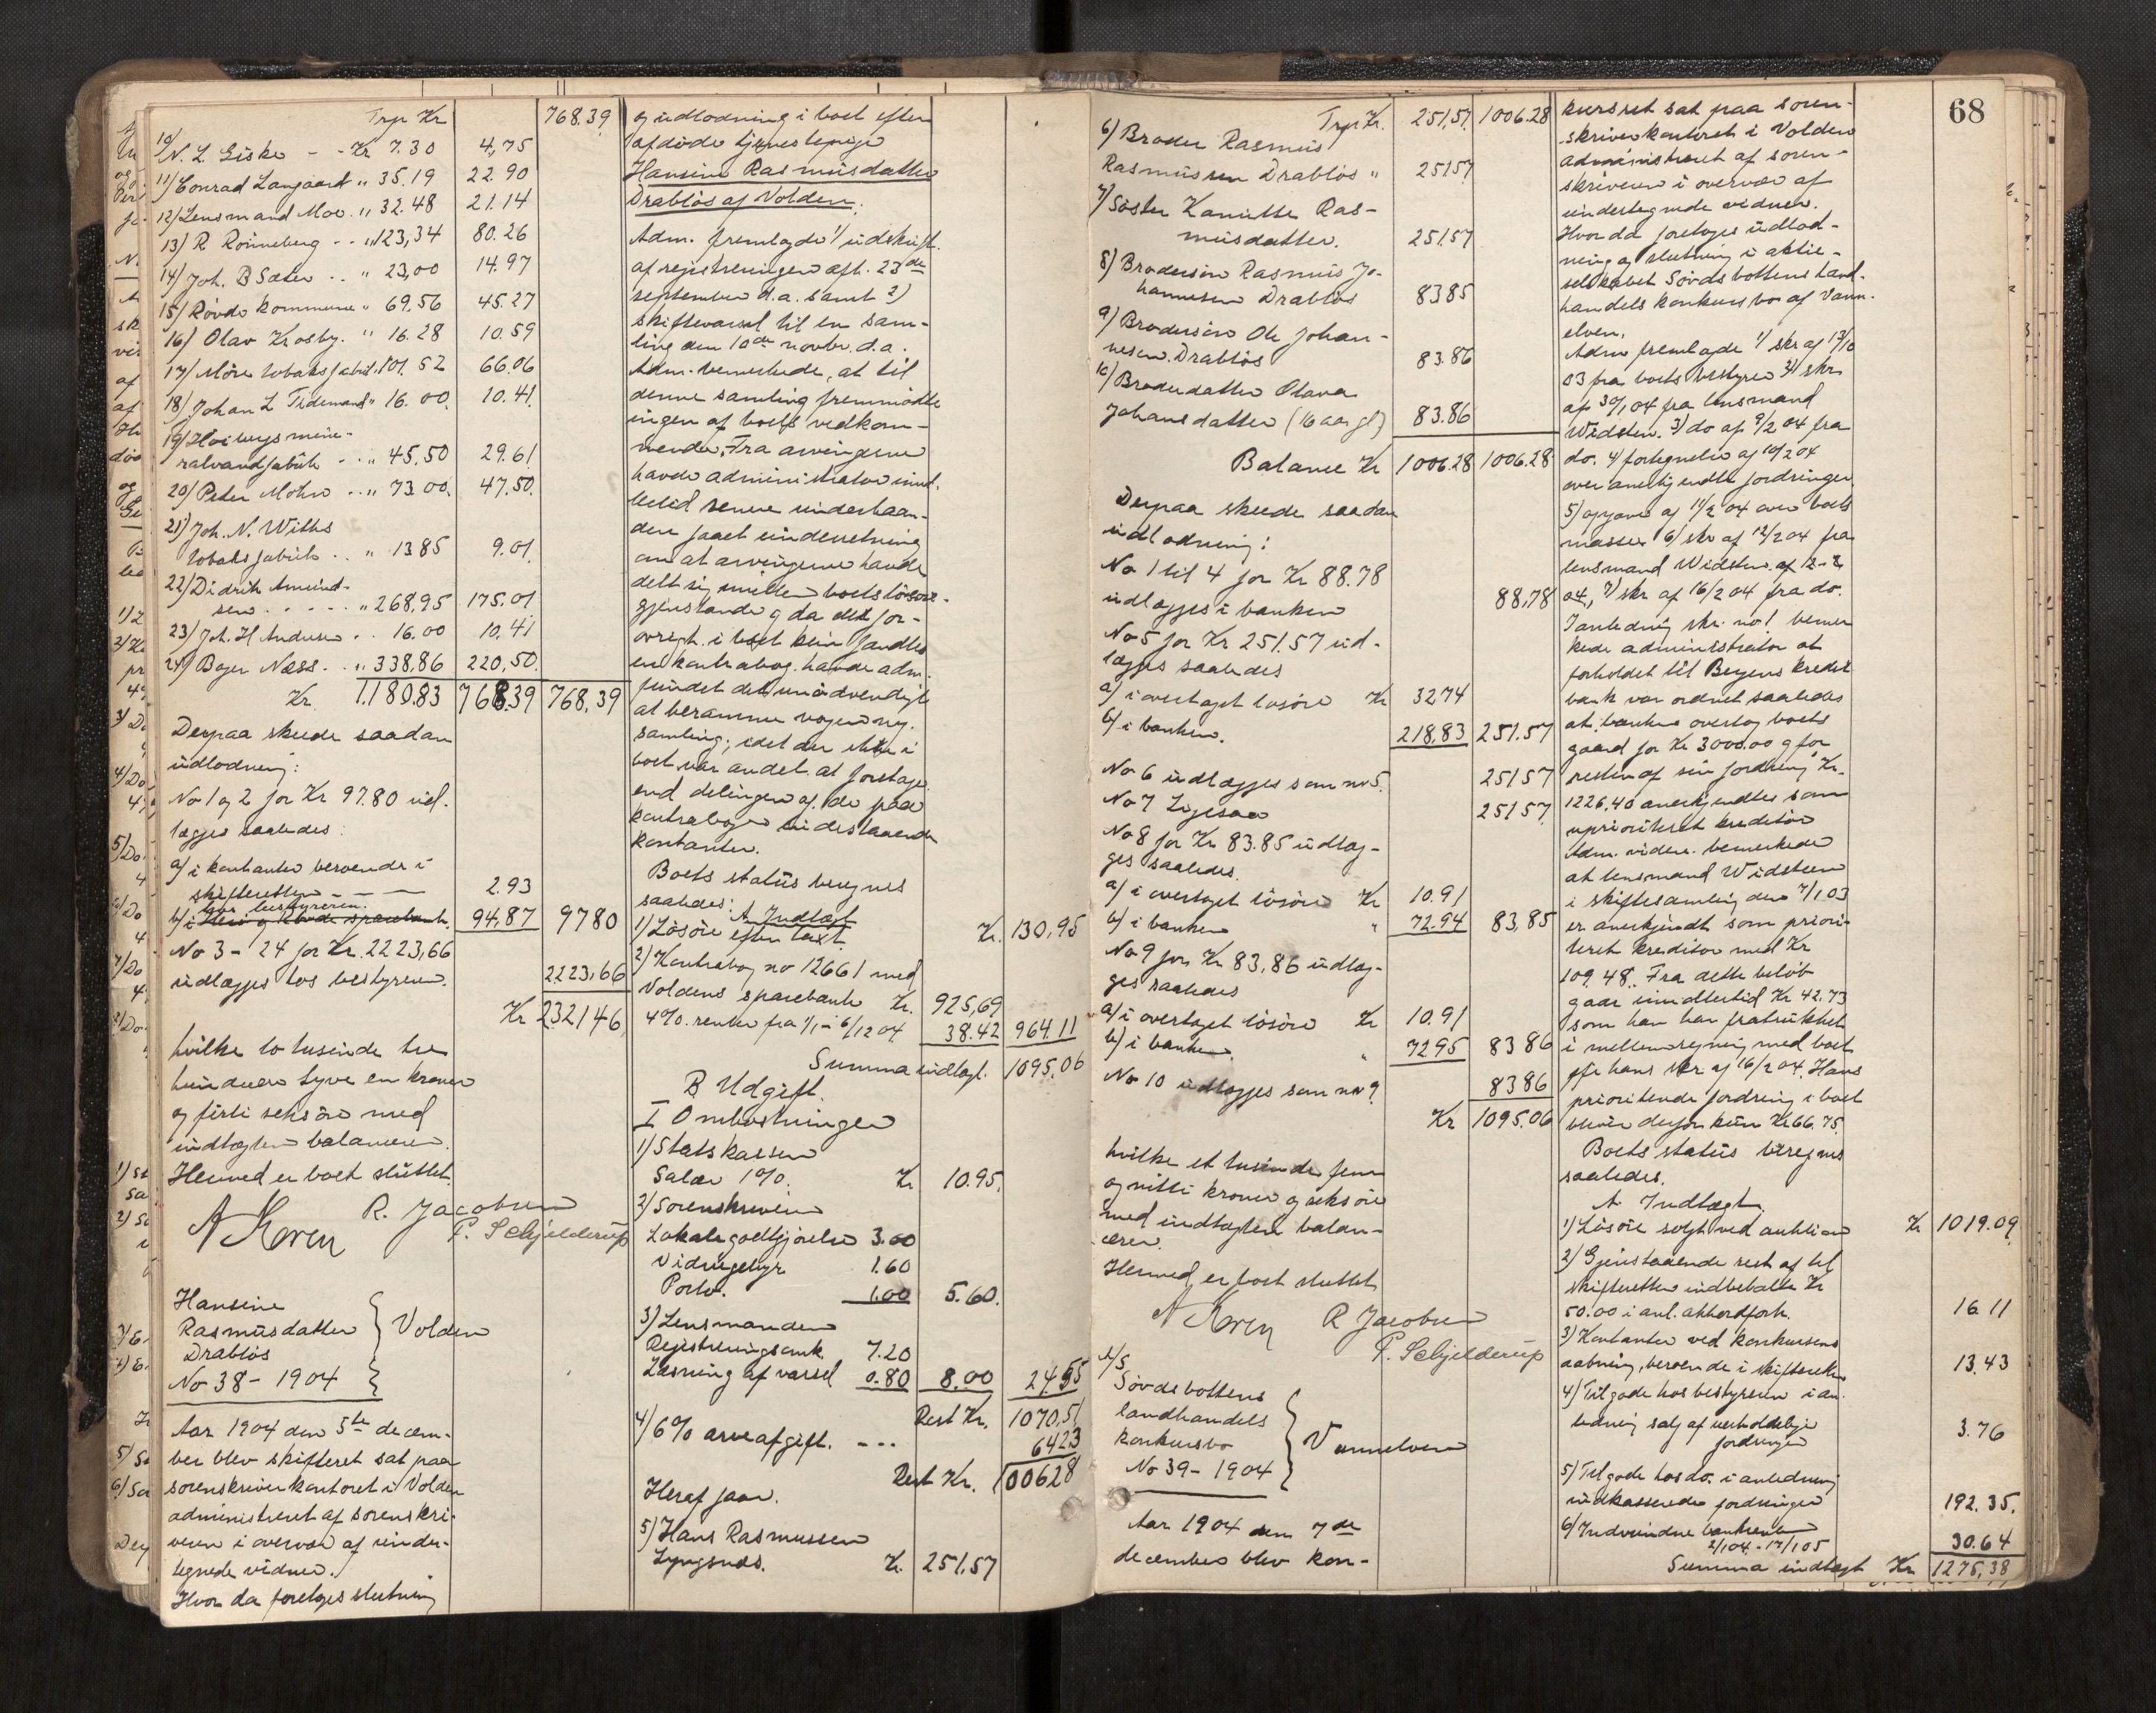 Trp Kr 768.39
10/ N. L. Giske - - Kr 7.30 4,75
11/ Conrad Langaard " 35.19 22.90
12/ Lensmand Moe . " 32.48 21.14
13/ R Rönneberg - - " 123,34 80.26
14/ Joh. B Sæter . . " 23,00 14.97
15/ Rovde kommune " 69.56 45.27
16/ Olav Krosby. " 16.28 10.59
17/ Möre tobaksfabrik. 101.52 66.06
18/ Johan L Tidemand " 16.00. 10.41.
19/ Hoibergs mine-
ralvandfabrik - . " 45,50 29.61
20/ Peter Mohn . . " 73 00. 47.50.
21/ Joh. N. Withs
tobaksfabrik . . " 13 85 9.01.
22/ Didrik Amund-
sen . . . . . " 268.95 175.01.
23/ Joh. H Andersen . . 16.00 10.41
24/ Bojer Næss. . . " 338.86 220,50.
Kr. 1.180.83 768.39 768,39
Derpaa skeede saadan
udlodning:
No 1 og 2 for Kr 97.80 ud-
lægges saaledes:
a/ i kontanter beroende i
skifteretten - - - 2.93
hos bestyreren.
b/ i sparebank. 94,87 97 80
No 3 - 24 for Kr. 2223,66
udlægges hos bestyreren. 2223,66
Kr 2321 46
hvilke to tusinde tre
hundrede tyve en kroner
og firti seks öre med
indtægten balancerer.
Hermed er boet sluttet.
A Koren R. Jacobsen
P. Schjelderup
Hansine
Rasmusdatter Volden
Drablös
No 38 - 1904
Aar 1904 den 5te decem-
ber blev skifteret sat paa
sorenskriverkontoret i Volden
administreret af sorenskri-
veren i overvær af under-
tegnede vidner.
Hvor da foretoges slutning
og udlodning i boet efter
afdöde tjenestepige
Hansine Rasmusdatter
Drablös af Volden.
Adm. fremlagde 1/ udskrift
af registreringen aft. 23de
september d.a. samt 2)
skiftevarsel til en sam-
ling den 10de novbr. d.a.
Adm. bemerkede, at til
denne samling fremmödte
ingen af boets vedkom-
mende. Fra arvingerne
havde administrator imid-
lertid senere underhaan-
den faaet underretning
om at arvingerne havde
delt sig imellem boets lösöre-
gjenstande og da det for-
övrigt i boet kun fandtes
en kontrabog, havde adm.
fundet det unödvendigt
at beramme nogen ny
samling, idet der ikke i
boet var andet at foretage
end delingen af de paa
kontrabogen indestaaende
kontanter.
Boets status beregnes
saaledes:
A Indtægt
1) Lösöre efter taxt. Kr. 130,95
2) Kontrabog no 12661 med
Voldens sparebank Kr. 925,69
4% renter fra 1/1 - 6/12 04 38.42 964.11
Summa indtægt. 1095.06
B Udgift.
I Omkostninger
1) Statskassen
Salær 1%. Kr 10.95.
2) Sorenskriveren
Lokalegodtgjörelse 3.00
Vidnegebyr 1.60
Porto. 1.00 5.60.
3) Lensmanden
Registreringsomk. 7.20
Læsning af varsel 0.80 8.00 24.55
Rest Kr. 1070.51
4/ 6% arveafgift. - - - 64 23
Rest Kr. 1006 28
Heraf faar.
5) Hans Rasmussen
Lyngsnæs. Kr. 251,57
68
Trp Kr. 251.57. 1006.28
6) Broder Rasmus
Rasmussen Drablös " 251 57
7) Söster Hanikke Ras-
musdatter. 251.57
8) Brodersön Rasmus Jo-
hannesen Drablös 83 85
9) Brodersön Ole Johan-
nesen Drablös 83.86
10) Broderdatter Olava
Johansdatter (16 aar gl) 83.86
Balance Kr 1006.28 1006.28
Derpaa skeede saadan
udlodning:
No 1 til 4 for Kr 88.78
udlægges i banken 88,78
No 5 for Kr 251.57 ud-
lægges saaledes
a) i overtaget lösöre Kr 32 74
b) i banken. 218,83 251.57
No 6 udlægges som no 5. 251 57
No 7 Ligesaa 251 57.
No 8 for Kr 83.85 udlæg-
ges saaledes.
a) i overtaget lösöre Kr 10.91
b) i banken " 72.94 83,85
No 9 for Kr 83,86 udlæg-
ges saaledes
a) i overtaget lösöre Kr 10.91
b) i banken. " 72 95 83 86
No 10 udlægges som no 9 83 86
Kr 1095.06
hvilke et tusinde fem
og nitti kroner og seks öre
med indtægten balan-
cerer.
Hermed er boet sluttet
A Koren R Jacobsen
P. Schjelderup
A/S
Sövdebottens
landhandels
konkursbo Vannelven
No 39 - 1904
Aar 1904 den 7de
december blev kon-
kursret sat paa soren-
skriverkontoret i Volden
administreret af soren-
skriveren i overvær af
undertegnede vidner.
Hvor da foretoges udlod-
ning og slutning i aktie-
selskabet Sövdebottens land-
handels konkursbo af Vann-
elven.
Adm fremlagde 1/ skr af 13/10
03 fra boets bestyrer 2/ skr
af 30/1 04 fra lensmand
Widsteen. 3) do af 9/2 04 fra
do. 4/ fortegnelse af 10/2 04
over anerkjendte fordringer
5) opgave af 11/2 04 over boets
masse 6/ skr af 12/2 04 fra
lensmand Widsteen af 12-2
04, 7/ skr af 16/2 04 fra do.
I anledning skr. no 1 bemer-
kede administrator at
forholdet til Bergens kredit-
bank var ordnet saaledes
at banken overtog boets
gaard for Kr 3000.00 og for
resten af sin fordring Kr.
1226.40 anerkjendtes som
uprioriteret kreditor
Adm. videre bemerkede
at lensmand Widsteen
i skiftesamling den 7/1 03
er anerkjendt som priori-
teret kreditor med Kr
109.48. Fra dette belöb
gaar imidlertid Kr 42.73
som han har fratrukket
i mellemregning med boet
jfr hans skr af 16/2 04. Hans
prioriterede fordring i boet
bliver derfor kun Kr 66.75.
Boets status beregnes
saaledes.
A Indtægt.
1) Lösöre solgt ved auktion Kr 1019.09
2) Gjenstaaende rest af til
skifteretten indbetalte Kr
50.00 i anl. akkordforh. 16.11
3) Kontanter ved konkursens
aabning, beroende i skifteretten 13.43
4) Tilgode hos bestyreren i an-
ledning salg af uerholdelige
fordringer 3.76
5) Tilgode hos do. i anledning
indkasserede fordringer 192.35.
6) Indvundne bankrenter
2/1 04 - 17/1 05 30.64
Summa indtægt Kr 1275,38